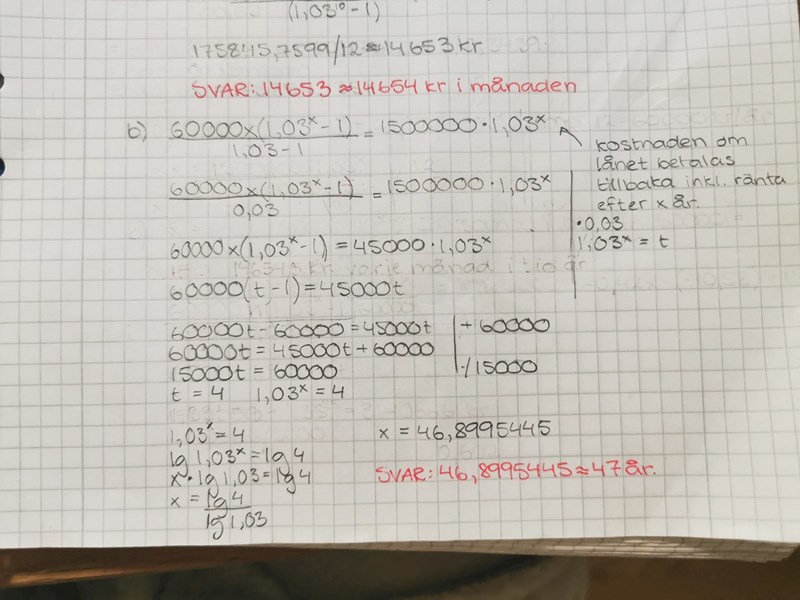 (1,03¹⁰ - 1)
175815,7599/12 ≈ 14653 kr
SVAR: 14653 ≈ 14654 kr i månaden
b) 60000×(1,03ˣ - 1) = 1500000 · 1,03ˣ
1,03 - 1
kostnaden om
lånet betalas
tillbaka inkl. ränta
efter x år.
60000×(1,03ˣ - 1) = 1500000 · 1,03ˣ
0,03
· 0,03
1,03ˣ = t
60000×(1,03ˣ - 1) = 45000 · 1,03ˣ
60000(t - 1) = 45000t
60000t - 60000 = 45000t | + 60000
60000t = 45000t + 60000
15000t = 60000 | ·/15000
t = 4 1,03ˣ = 4
1,03ˣ = 4
x = 46,8995445
lg 1,03ˣ = lg 4
x · lg 1,03 = lg 4
SVAR: 46,8995445 ≈ 47 år.
x = lg 4
lg 1,03